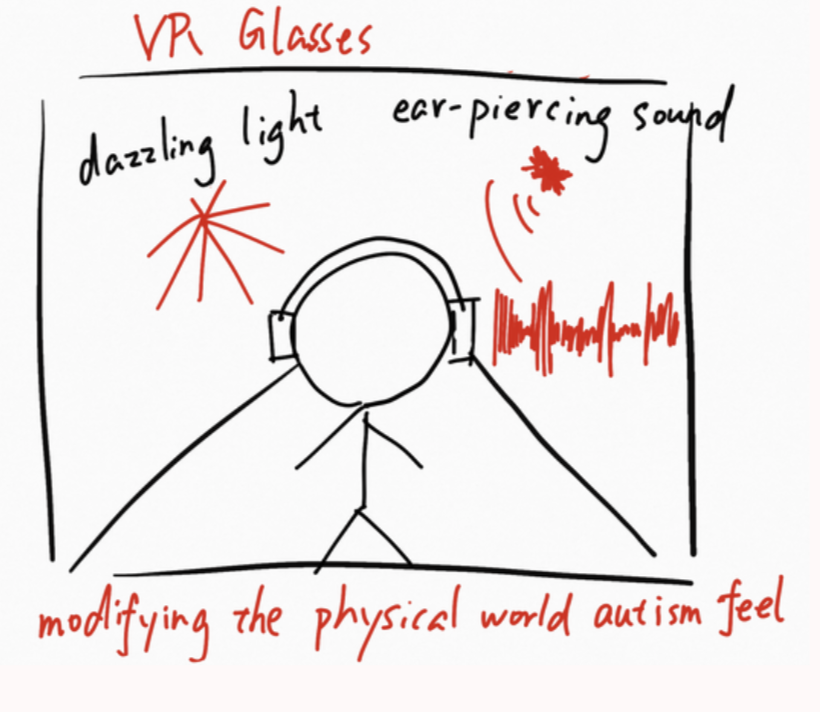 VR Glasses
dazzling light
ear-piercing sound
modifying the physical world autism feel